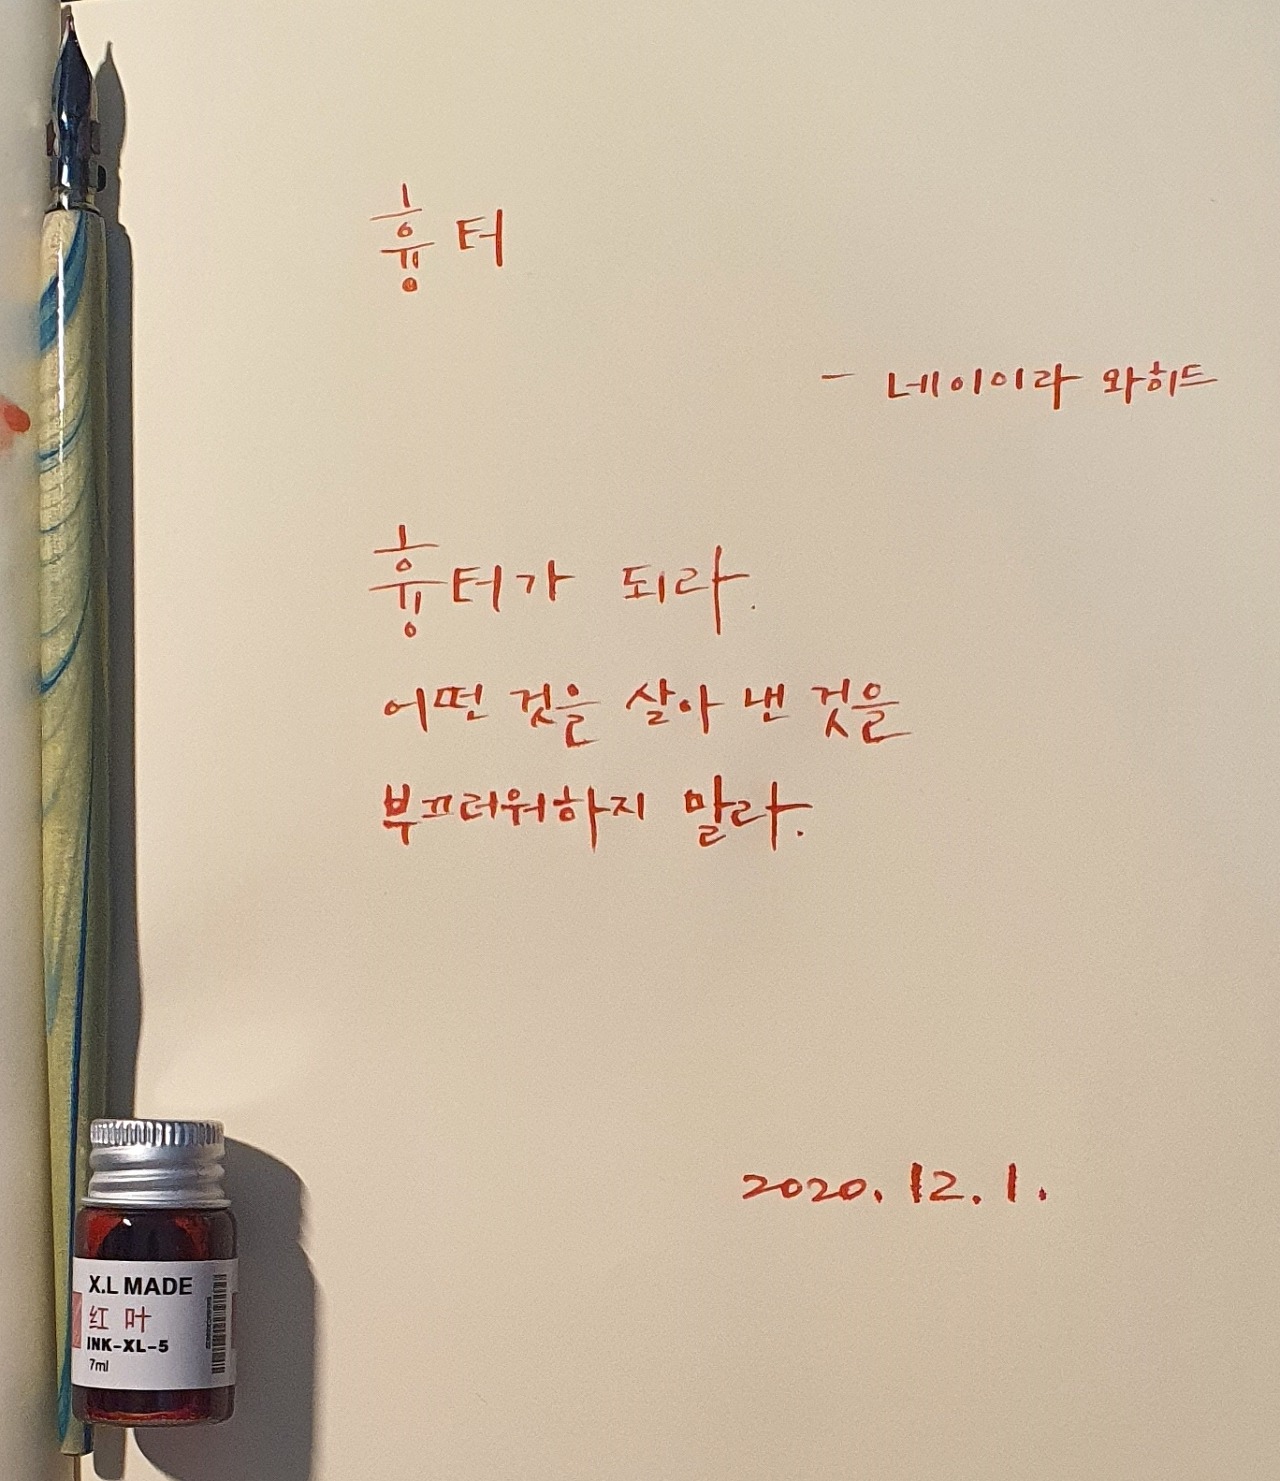 흉터
- 네이이라 와히드
흉터가 되라.
어떤 것을 살아 낸 것을
부끄러워하지 말라.
2020.12.1.
X.L MADE
红 叶
INK-XL-5
7ml